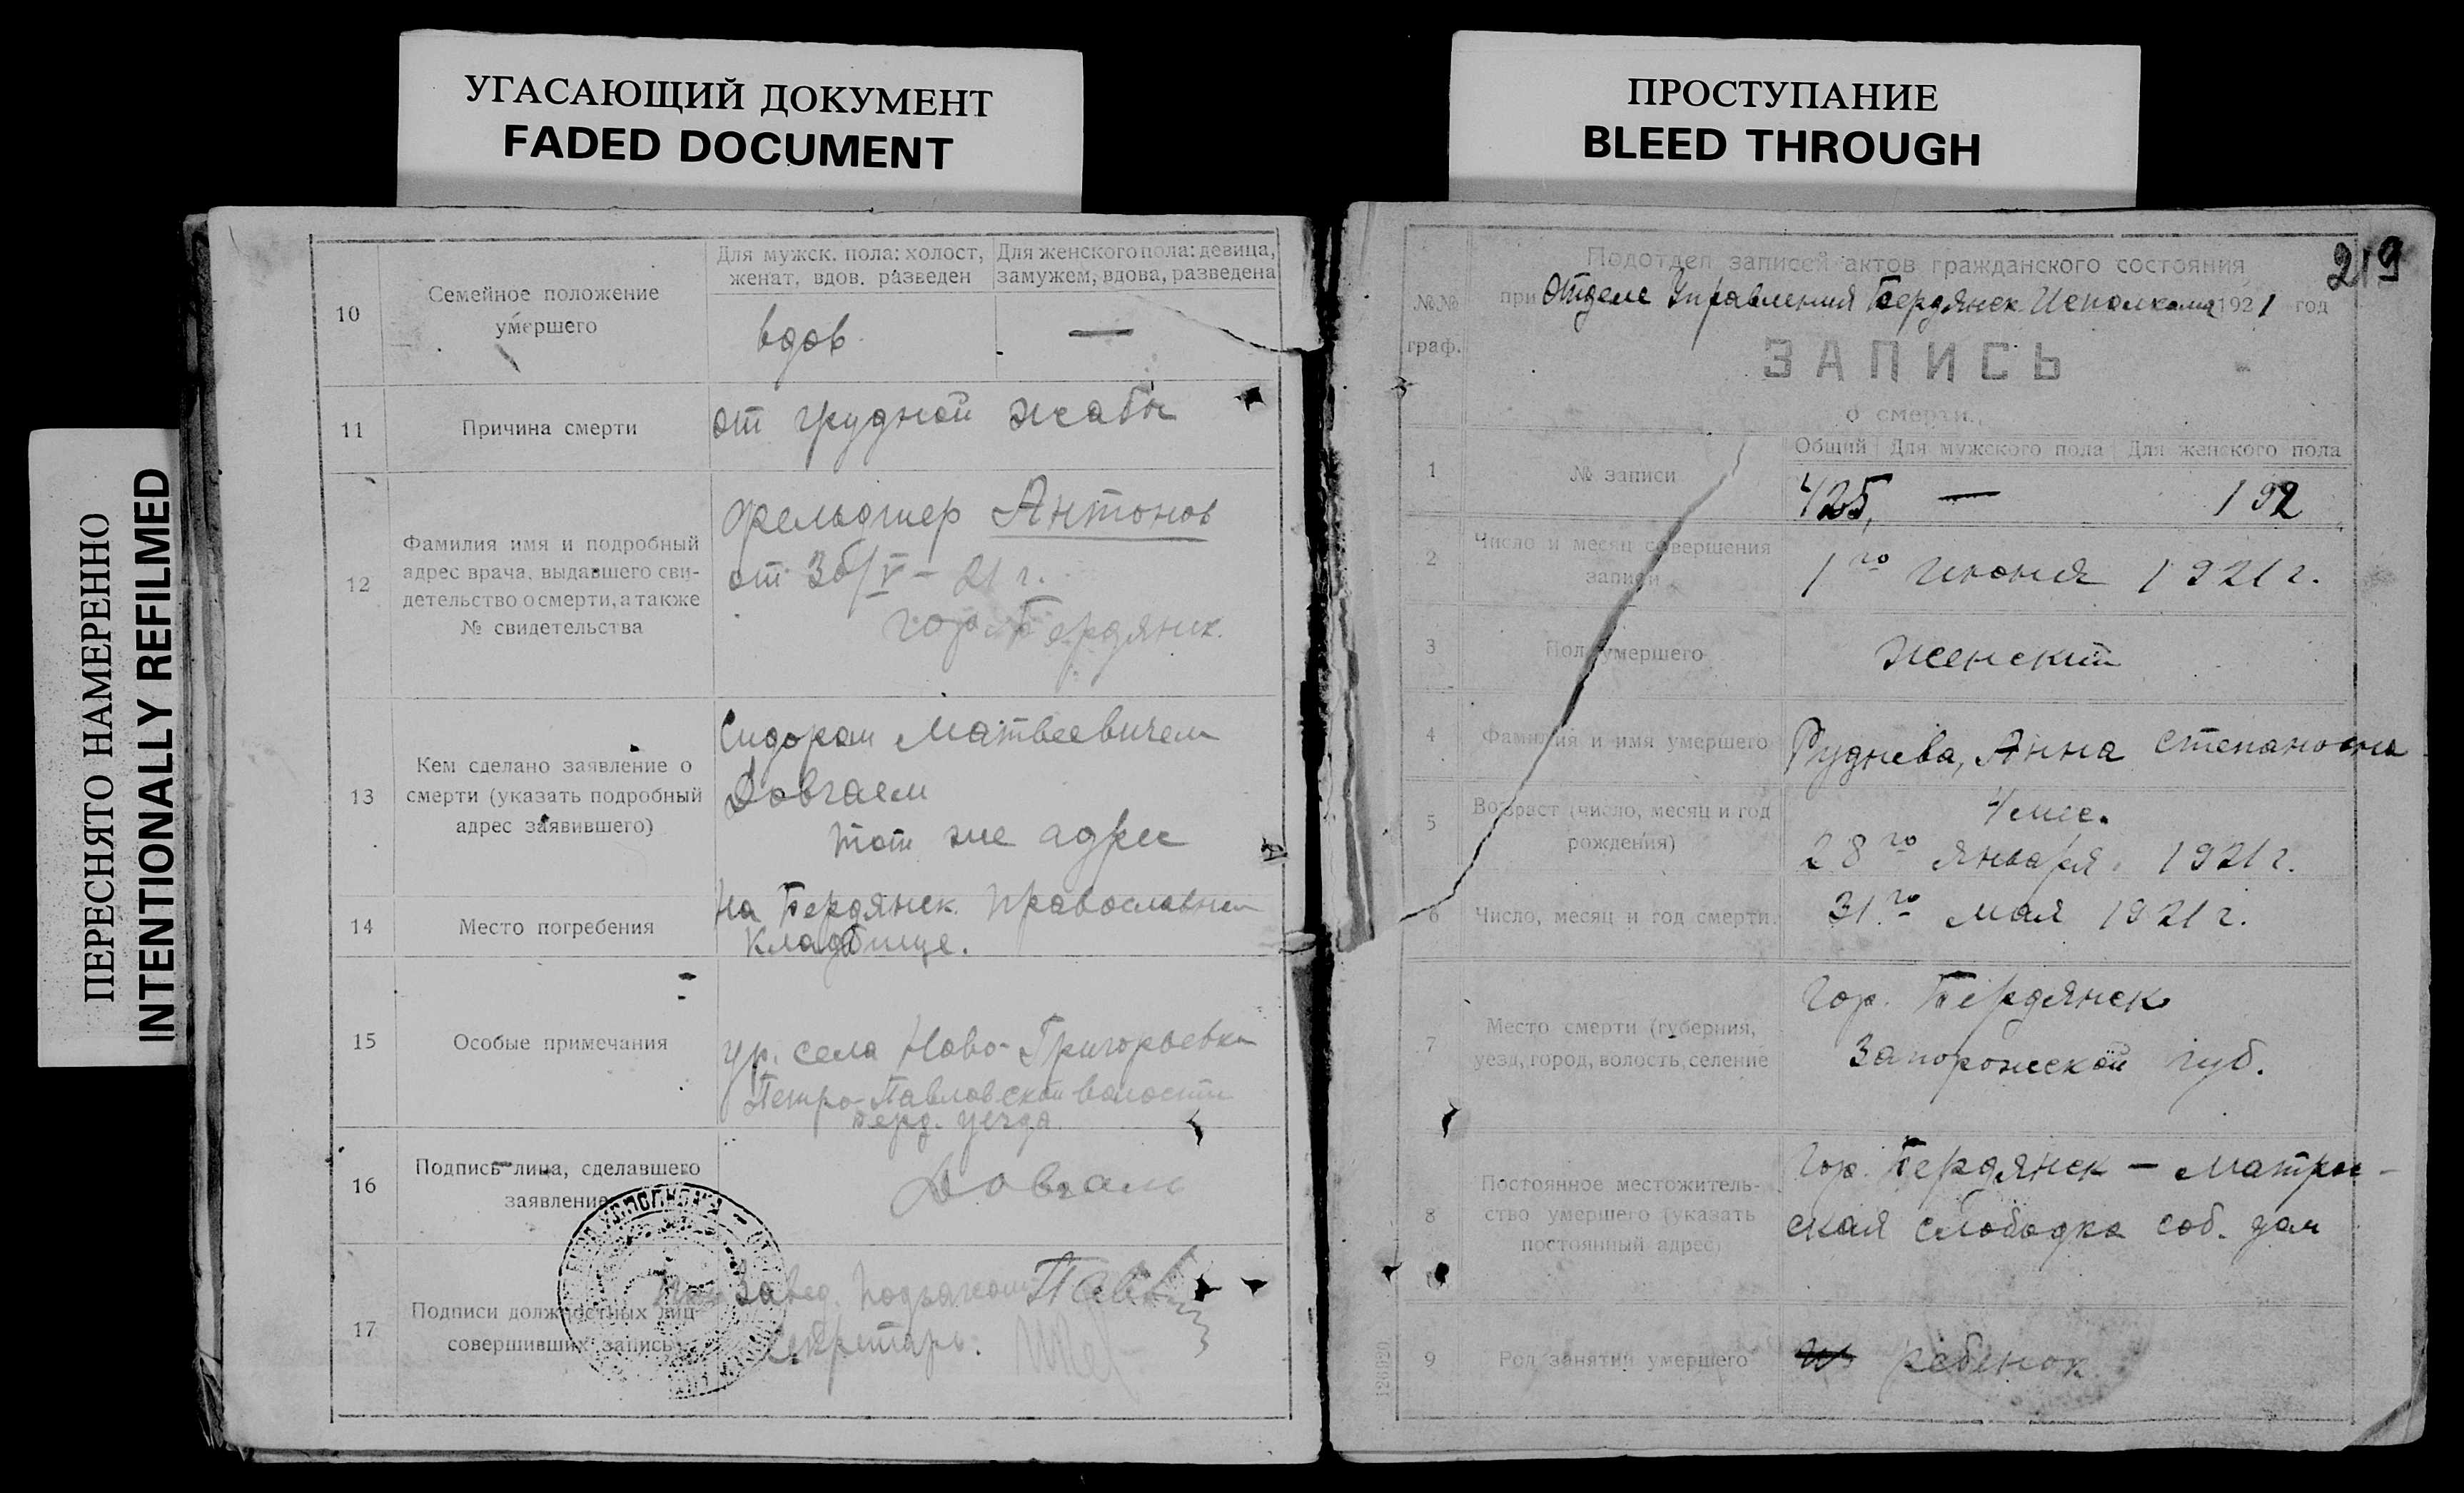 УГАСАЮЩИЙ ДОКУМЕНТ
FADED DOCUMENT
ПРОСТУПАНИЕ
BLEED THROUGH
ПЕРЕСНЯТО НАМЕРЕННО
INTENTIONALLY REFILMED
10
Семейное положение
умершего
Для мужск. пола: холост,
женат, вдов. разведен
Для женского пола: девица,
замужем, вдова, разведена
вдов.
—
11
Причина смерти
от грудной жабы
12
Фамилия имя и подробный
адрес врача, выдавшего сви-
детельство о смерти, а также
№ свидетельства
фельдшер Антонов
от 30/V – 21 г.
гор. Бердянск.
13
Кем сделано заявление о
смерти (указать подробный
адрес заявившего)
Сидором Матвеевичем
Довгаем
тот же адрес
14
Место погребения
На Бердянск. православном
кладбище.
15
Особые примечания
ур. села Ново-Григорьевки
Петро-Павловской волости
Берд. уезда
16
Подпись лица, сделавшего
заявление
17
Подписи должностных лиц
совершивших запись
Завед. подъотделом
Секретарь:
219
№№
граф.
Подотдел записей актов гражданского состояния
при Отделе Управления Бердянск. Исполкома 1921 год
ЗАПИСЬ
о смерти.
1
№ записи
Общий
Для мужского пола
Для женского пола
425,
—
192
2
Число и месяц совершения
записи
1го июня 1921 г.
3
Пол умершего
Женский
4
Фамилия и имя умершего
Руднева, Анна Степановна
5
Возраст (число, месяц и год
рождения)
4 мес.
28го января 1921 г.
6
Число, месяц и год смерти.
31го мая 1921 г.
7
Место смерти (губерния,
уезд, город, волость, селение
Гор. Бердянск
Запорожской губ.
8
Постоянное местожитель-
ство умершего (указать
постоянный адрес)
Гор. Бердянск – Матрос-
ская слободка соб. дом
9
Род занятий умершего
ребенок